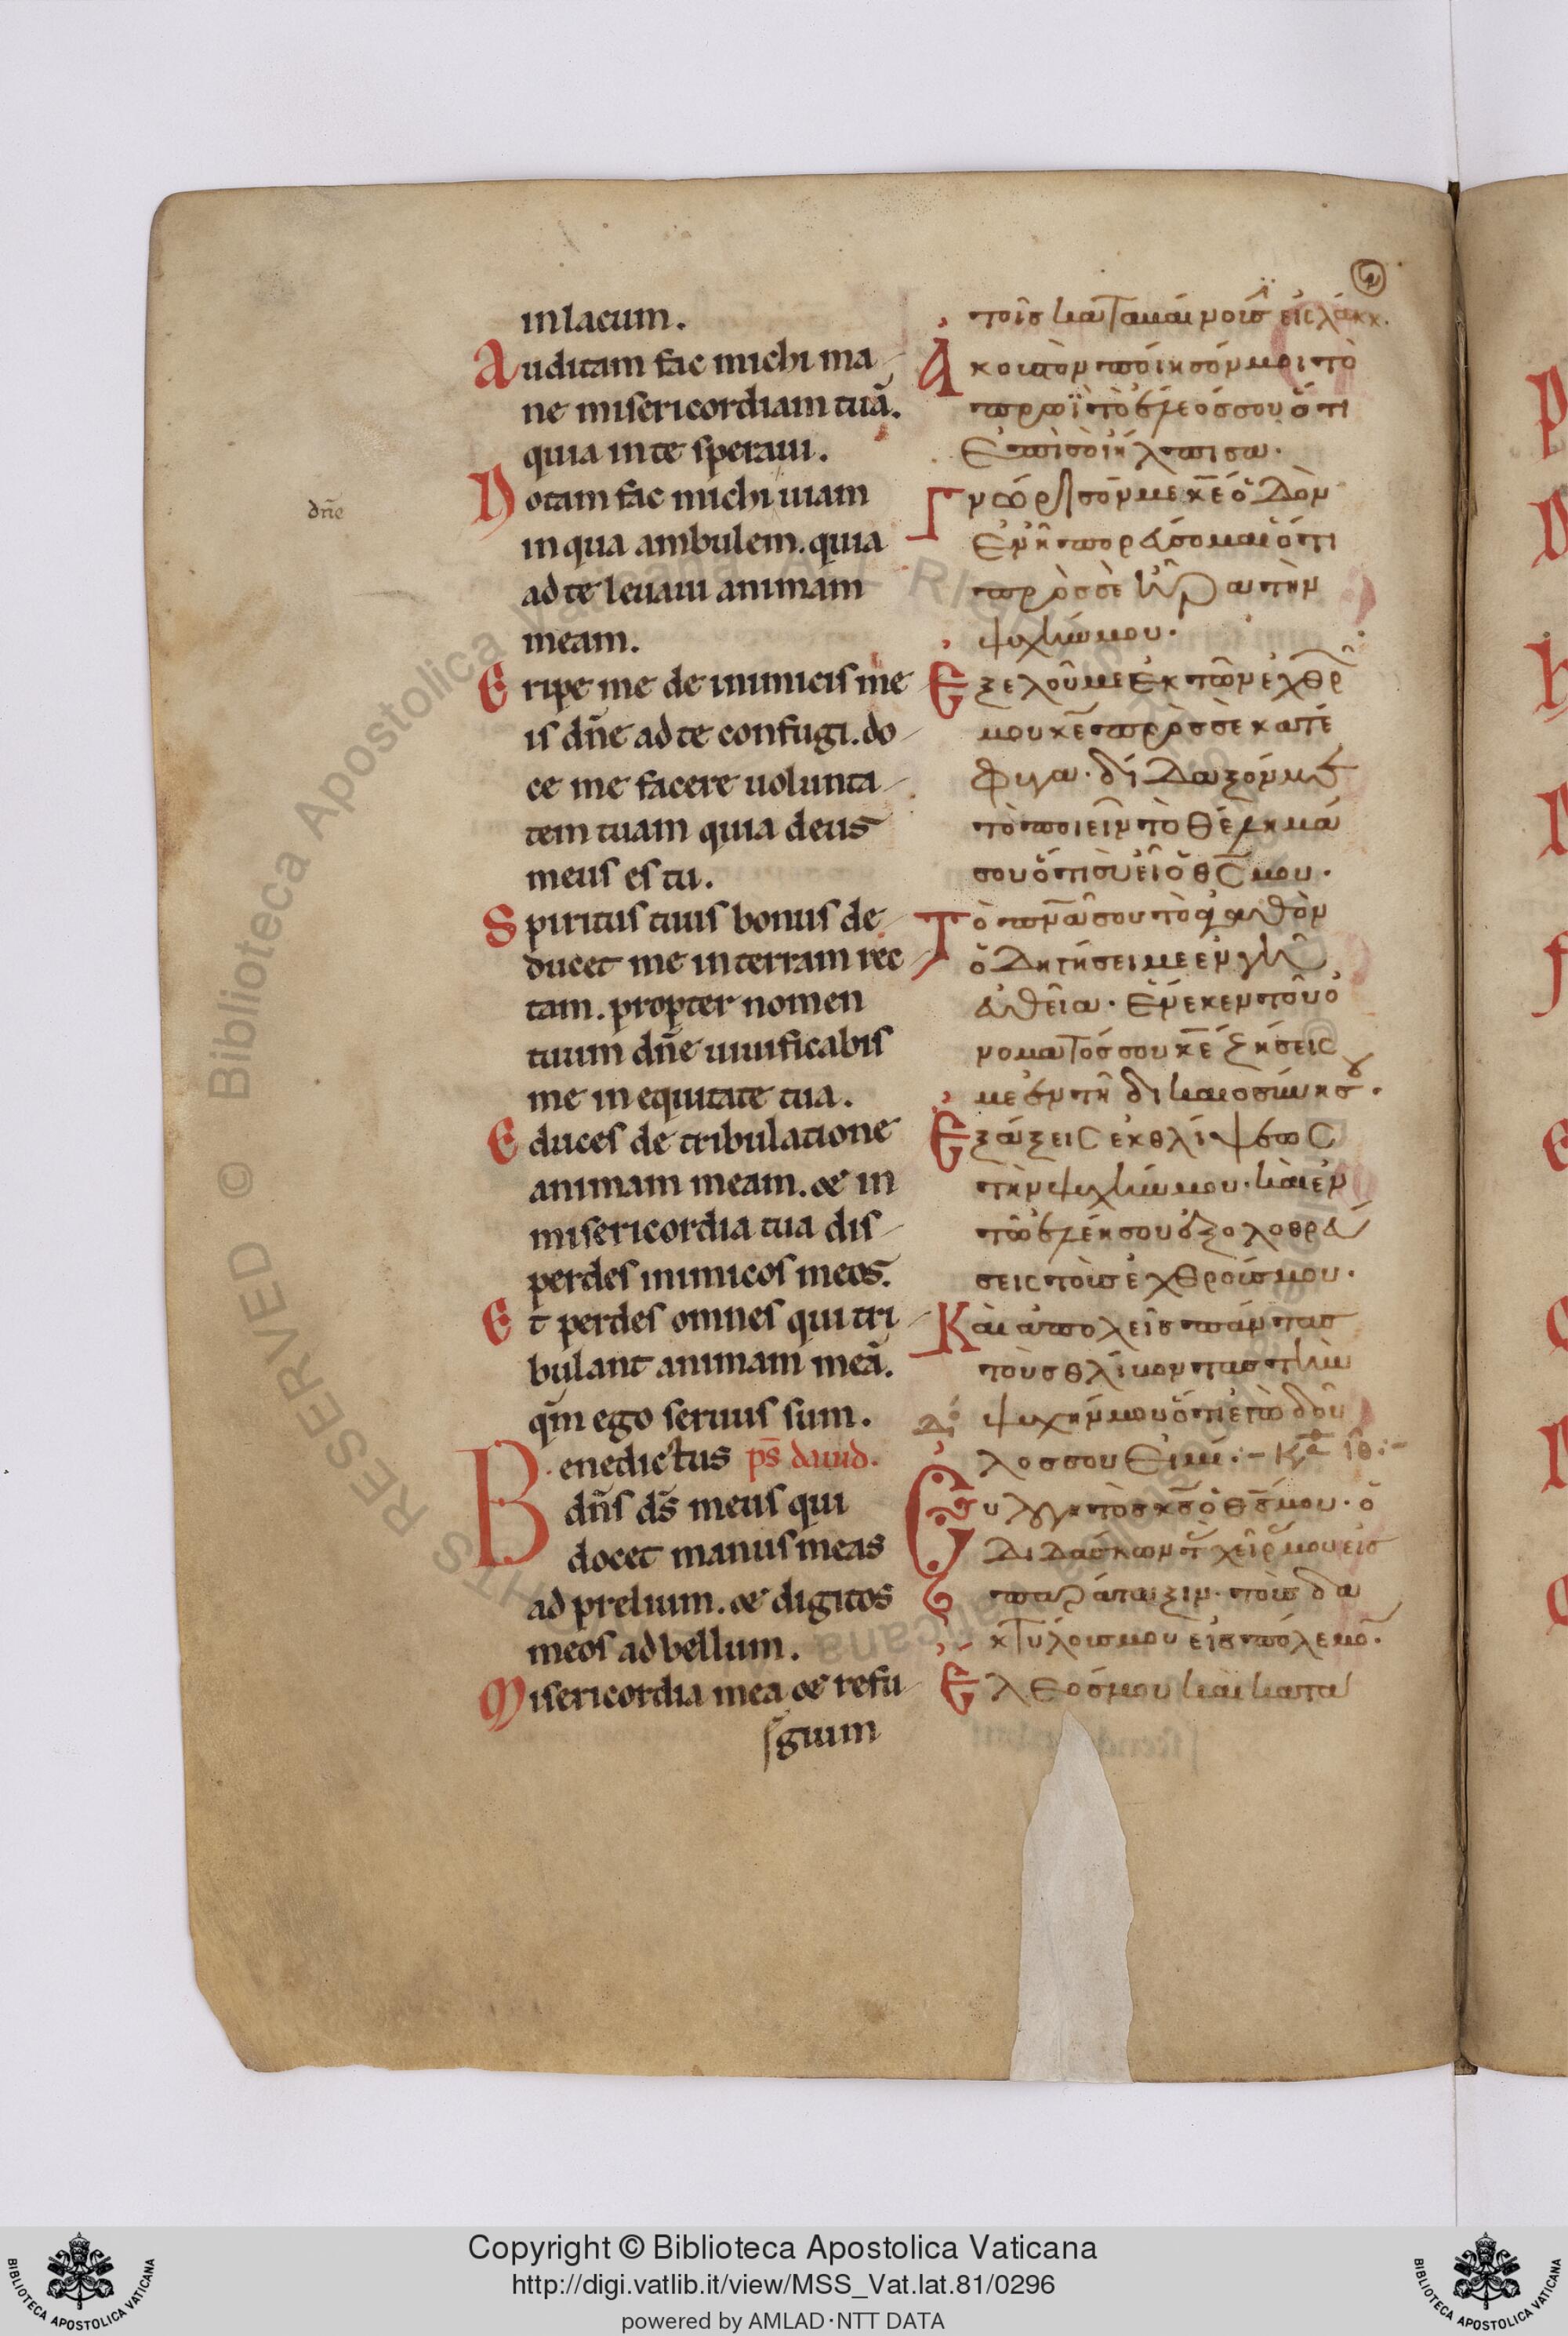 in lacum.
Auditam fac michi ma
ne misericordiam tuã.
quia in te speraui.
Notam fac michi uiam
in qua ambulem. quia
ad te leuaui animam
meam.
Eripe me de inimicis me
is dñe ad te confugi. do
ce me facere uolunta
tem tuam quia deus
meus es tu.
Spiritus tuus bonus de
ducet me in terram rec
tam. propter nomen
tuum dñe uiuificabis
me in equitate tua.
Educes de tribulatione
animam meam. & in
misericordia tua dis
perdes inimicos meos.
Et perdes omnes qui tri
bulant animam meã.
qm̃ ego seruus sum.
Benedictus ps̃ dauid.
dñs ds̃ meus qui
docet manus meas
ad prelium. & digitos
meos ad bellum.
Misericordia mea & refu
gium
dñe
τοῖς καταβαίνουσιν εἰς λάκκ.
Ἀκουστὸν ποίησόν μοι τὸ
πρωῒ τὸ ἔλεός σου ὅτι
ἐπὶ σοὶ ἤλπισα.
Γνώρισόν με κ̅ε̅ ὁδὸν
ἐν ᾗ πορεύσομαι ὅτι
πρὸς σὲ ἦρα τὴν
ψυχήν μου.
Ἐξελοῦ με ἐκ τῶν ἐχθρ
μου κ̅ε̅ πρὸς σὲ κατέ
φυγα. δίδαξόν με
τὸ ποιεῖν τὸ θέλημά
σου ὅτι σὺ εἶ ὁ θ̅ς̅ μου.
Τὸ πν̅α̅ σου τὸ ἀγαθὸν
ὁδηγήσει με ἐν γῇ
εὐθεῖα. ἕνεκεν τοῦ ὀ
νόματός σου κ̅ε̅ ζήσεις
με ἐν τῇ δικαιοσύνῃ σου.
Ἐξάξεις ἐκ θλίψεως
τὴν ψυχήν μου. καὶ ἐν
τῷ ἐλέει σου ἐξολοθρεύ
σεις τοὺς ἐχθρούς μου.
Καὶ ἀπολεῖς πάντας
τοὺς θλίβοντας τὴν
ψυχήν μου ὅτι ἐγὼ δοῦ
λός σου εἰμί:-
Εὐλογητὸς κ̅ς̅ ὁ θ̅ς̅ μου. ὁ
διδάσκων τ χεῖρ μου εἰς
παράταξιν. τοὺς δα
κτύλους μου εἰς πόλεμο.
Ἔλεός μου καὶ κατα
Copyright © Biblioteca Apostolica Vaticana
http://digi.vatlib.it/view/MSS_Vat.lat.81/0296
powered by AMLAD·NTT DATA